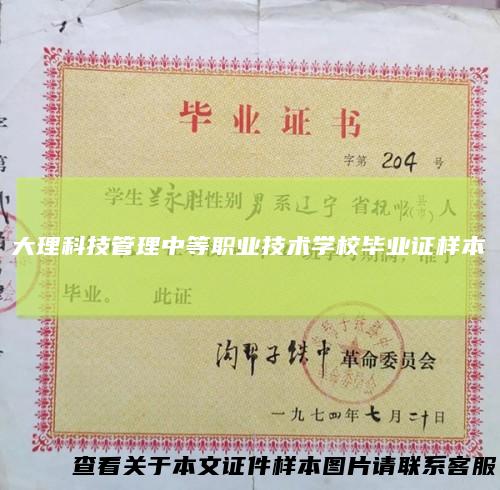 毕业证书
字第 204 号
学生兰永胜性别男系辽宁省抚顺县(市)人
大理科技管理中等职业技术学校毕业证样本
毕业。 此证
沟帮子铁中革命委员会
一九七四年七月二十日
查看关于本文证件样本图片请联系客服